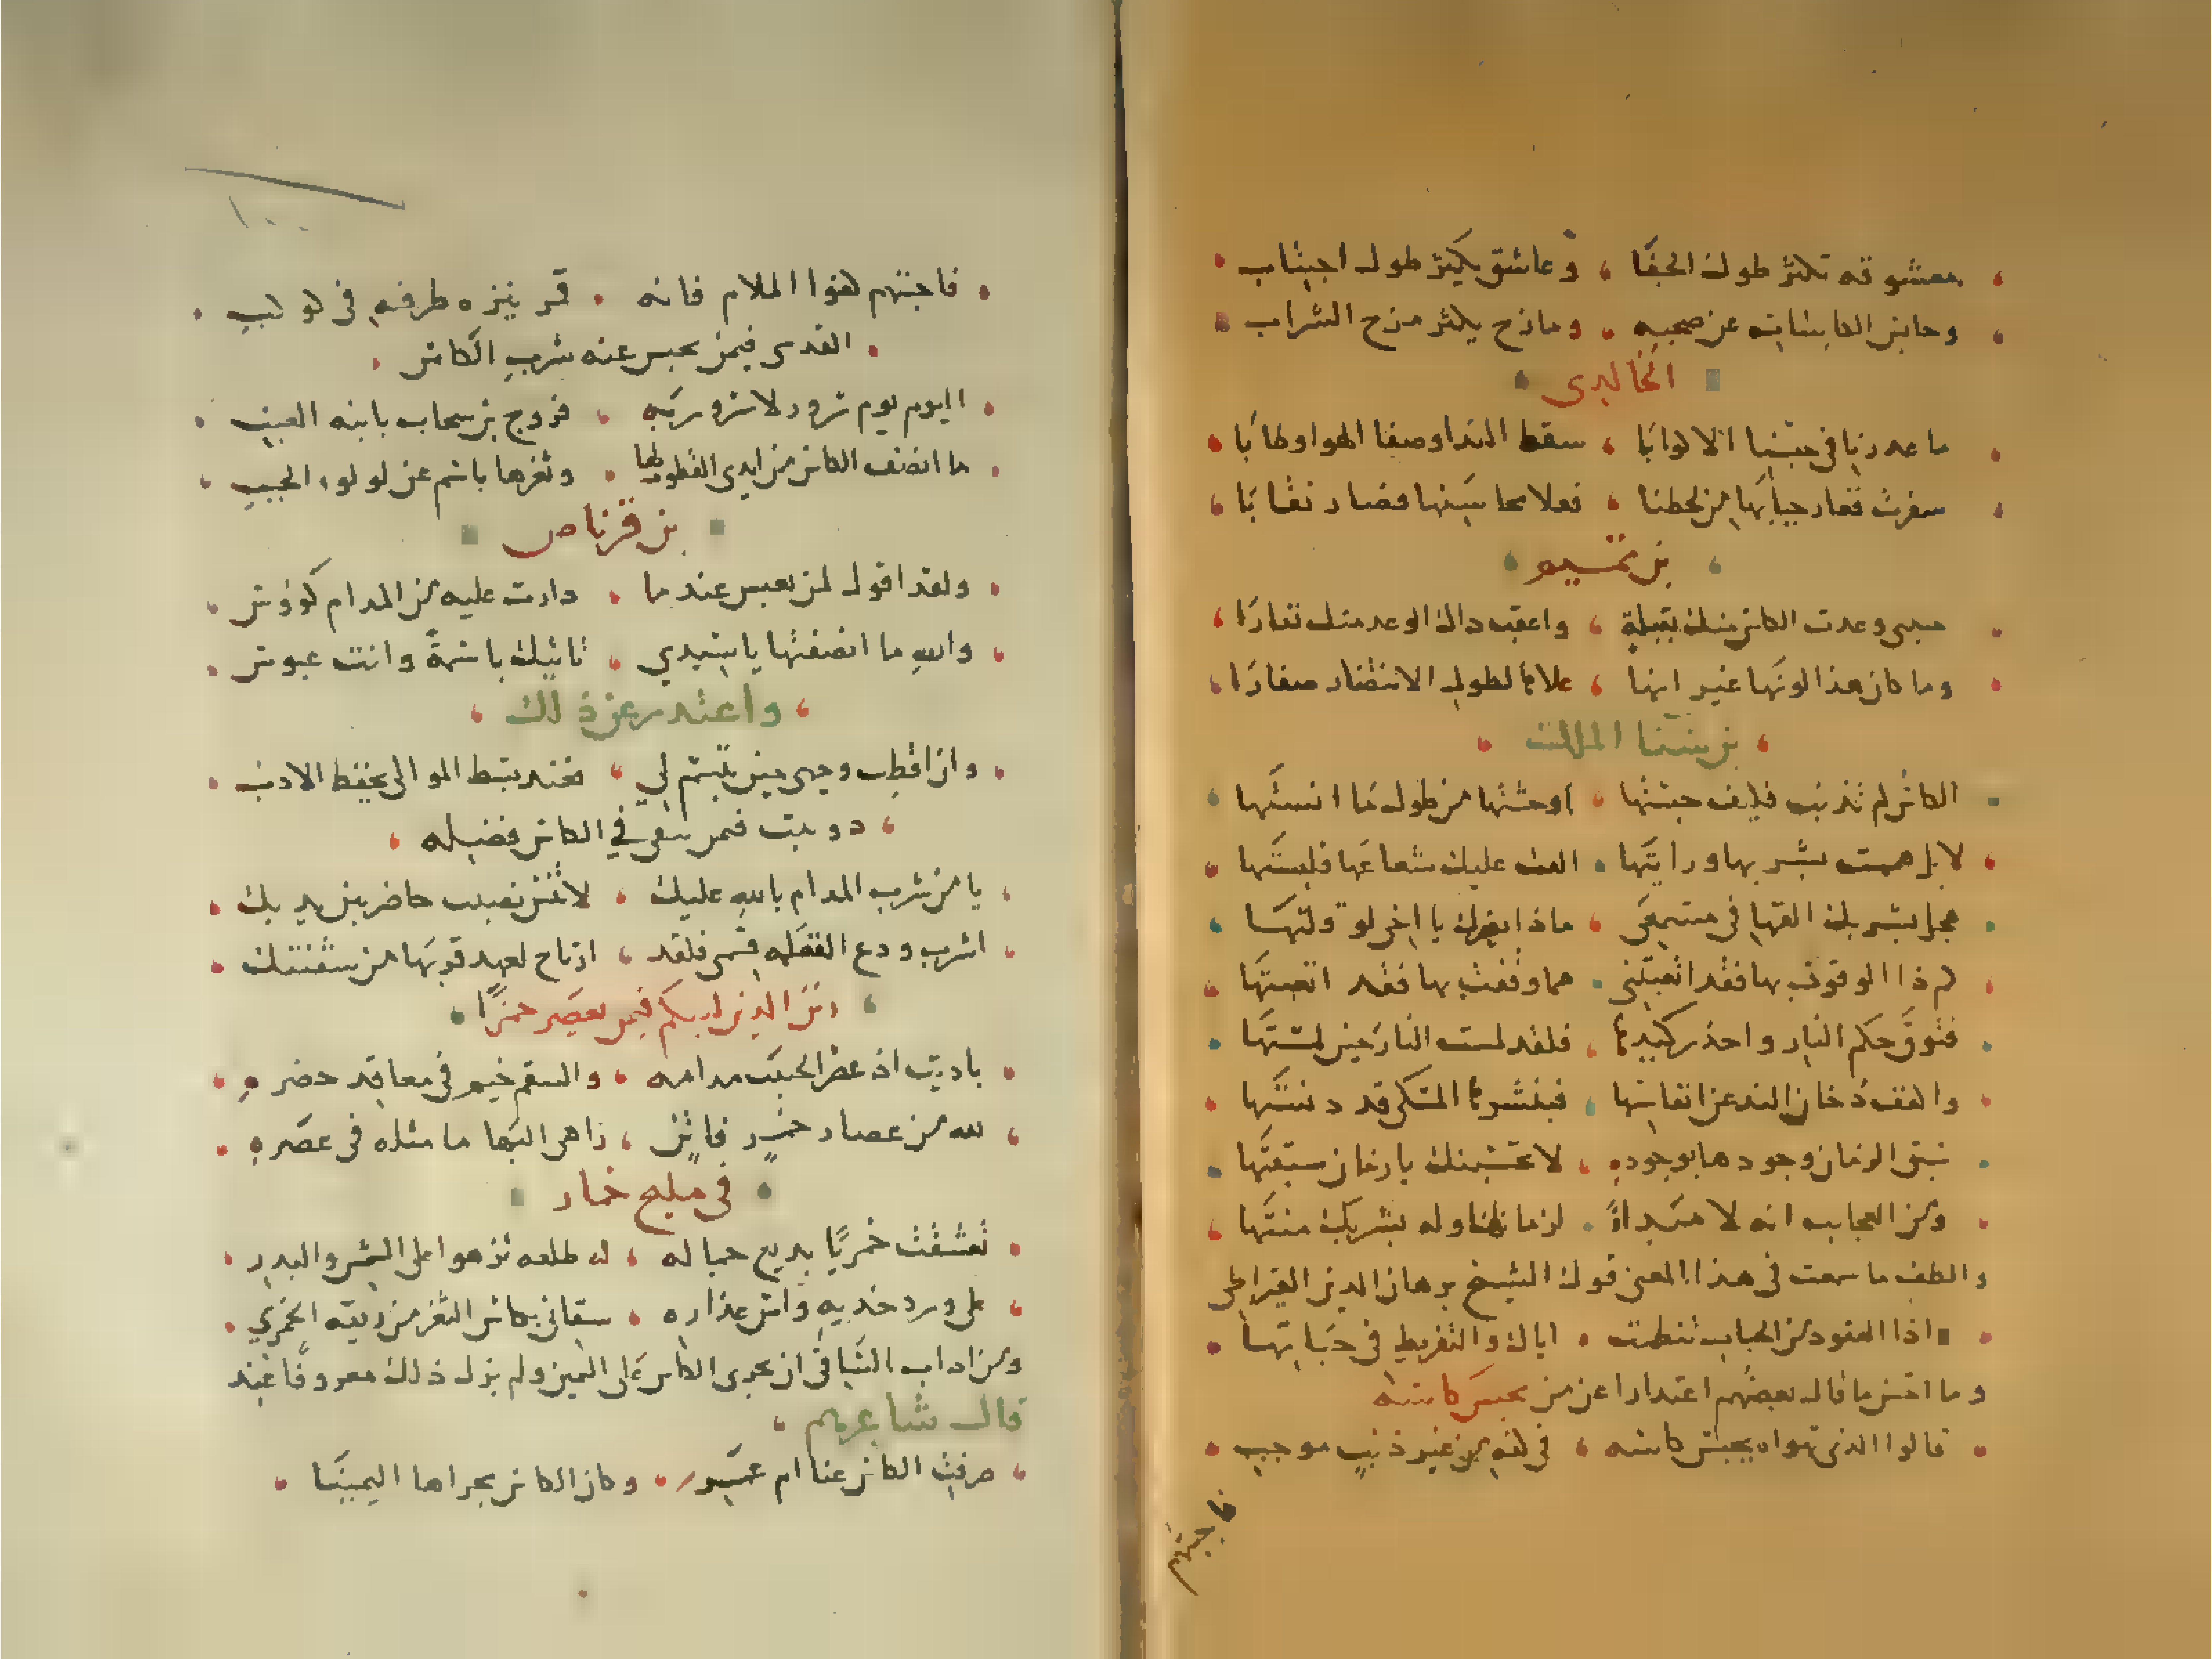 معشوقه تكثر طول الجفا وعاشق يكثر طول اجتناب
وحابس الكاسات عن صحبه ومازح يكثر مزح الشراب
الخالدى
ما عدرنا فى حبسنا الاكوابا سقط الندا وصفا الهوا وطابا
سفرت فغار حبابها من لحظنا فعلا محاسنها فصار نقابا
بن تميم
وعدت الكاس منك بقبلة واعقب داك الوعد منك نفارا
وما كان هذا لونها غير انها علاها لطول الانتضار صفارا
بن سنا الملك
الكاس لم تذنب فكيف حبستها اوحشتها من طول ما انستها
لا بل هممت بشربها ورايتها القت عليك شعاعها فلبستها
عجل بشربك القها فى مسمعى ماذا يضرك يا اخى لو قولتها
لم ذا الوقوف بها فقد اتعبتنى هما وقفت بها فقد اتعبتها
فتوق حكم النار واحذر كيدها فلقد لمست النار حين لمستها
والفف دخان الند عن انفاسها فبنشرها المسكى قد دنستها
سبق الزمان وجودها بوجوده لا تحسبنك يا زمان سبقتها
ومن العجايب انه لا مبتداؤ لزمانها وله بشربك منتها
والطف ما سمعت فى هذا المعنى قول الشيخ برهان الدين القيراطى
اذا العقود من الحباب تنظمت اياك والتفريط فى حباتها
وما احسن ما قال بعضهم اعتدارا عن من يحبس كاسه
قالوا الذى تهواه يحبس كاسه فى كفه من غير ذنب موجب
فاجبتهم
فاجبتهم كفوا الملام فانه قمر ينزه طرفه فى كوكب
القدسى فيمن يحبس عنه شرب الكاس
اليوم يوم سرور لا شرور به فزوج بن سحاب بابنه العنب
ما انصف الكاس من ابدى القطوب لها وثغرها باسم عن لولو الحبب
بن قرناص
ولقد اقول لمن تعبس عند ما دارت عليه من المدام كووس
والله ما انصفتها يا سيدي تاتيك باسمة وانت عبوس
واعتدر عن ذلك
وان اقطب وجهى حين تبسم لى فعند بسط الموالى يحفظ الادب
دوبيت فيمن يبقى في الكاس فضيله
يا من شرب المدام بالله عليك لا تنس نصيب حاضر بين يديك
اشرب ودع الفضله قسمى فلقد ارتاح لعهد قربها من شفتيك
زين الدين فيمن يعصر خمرًا
والسقم خيم فى معاقد خصره
لله من عصار خمر فاتن زاهى البها ما مثله فى عصره
فى مليح خمار
تعشقت خمريا بديع جماله له طلعه تزهوا على الشمس والبدر
على ورد خديه واس عذاره سقانى بكاس الثغر من ريقه الخمري
ومن اداب الساقى ان يجرى الكاس على اليمين ولم يزل ذلك معروفا عند
قال شاعرهم
صرفت الكاس عنا ام عمرو وكان الكاس مجراها اليمينا